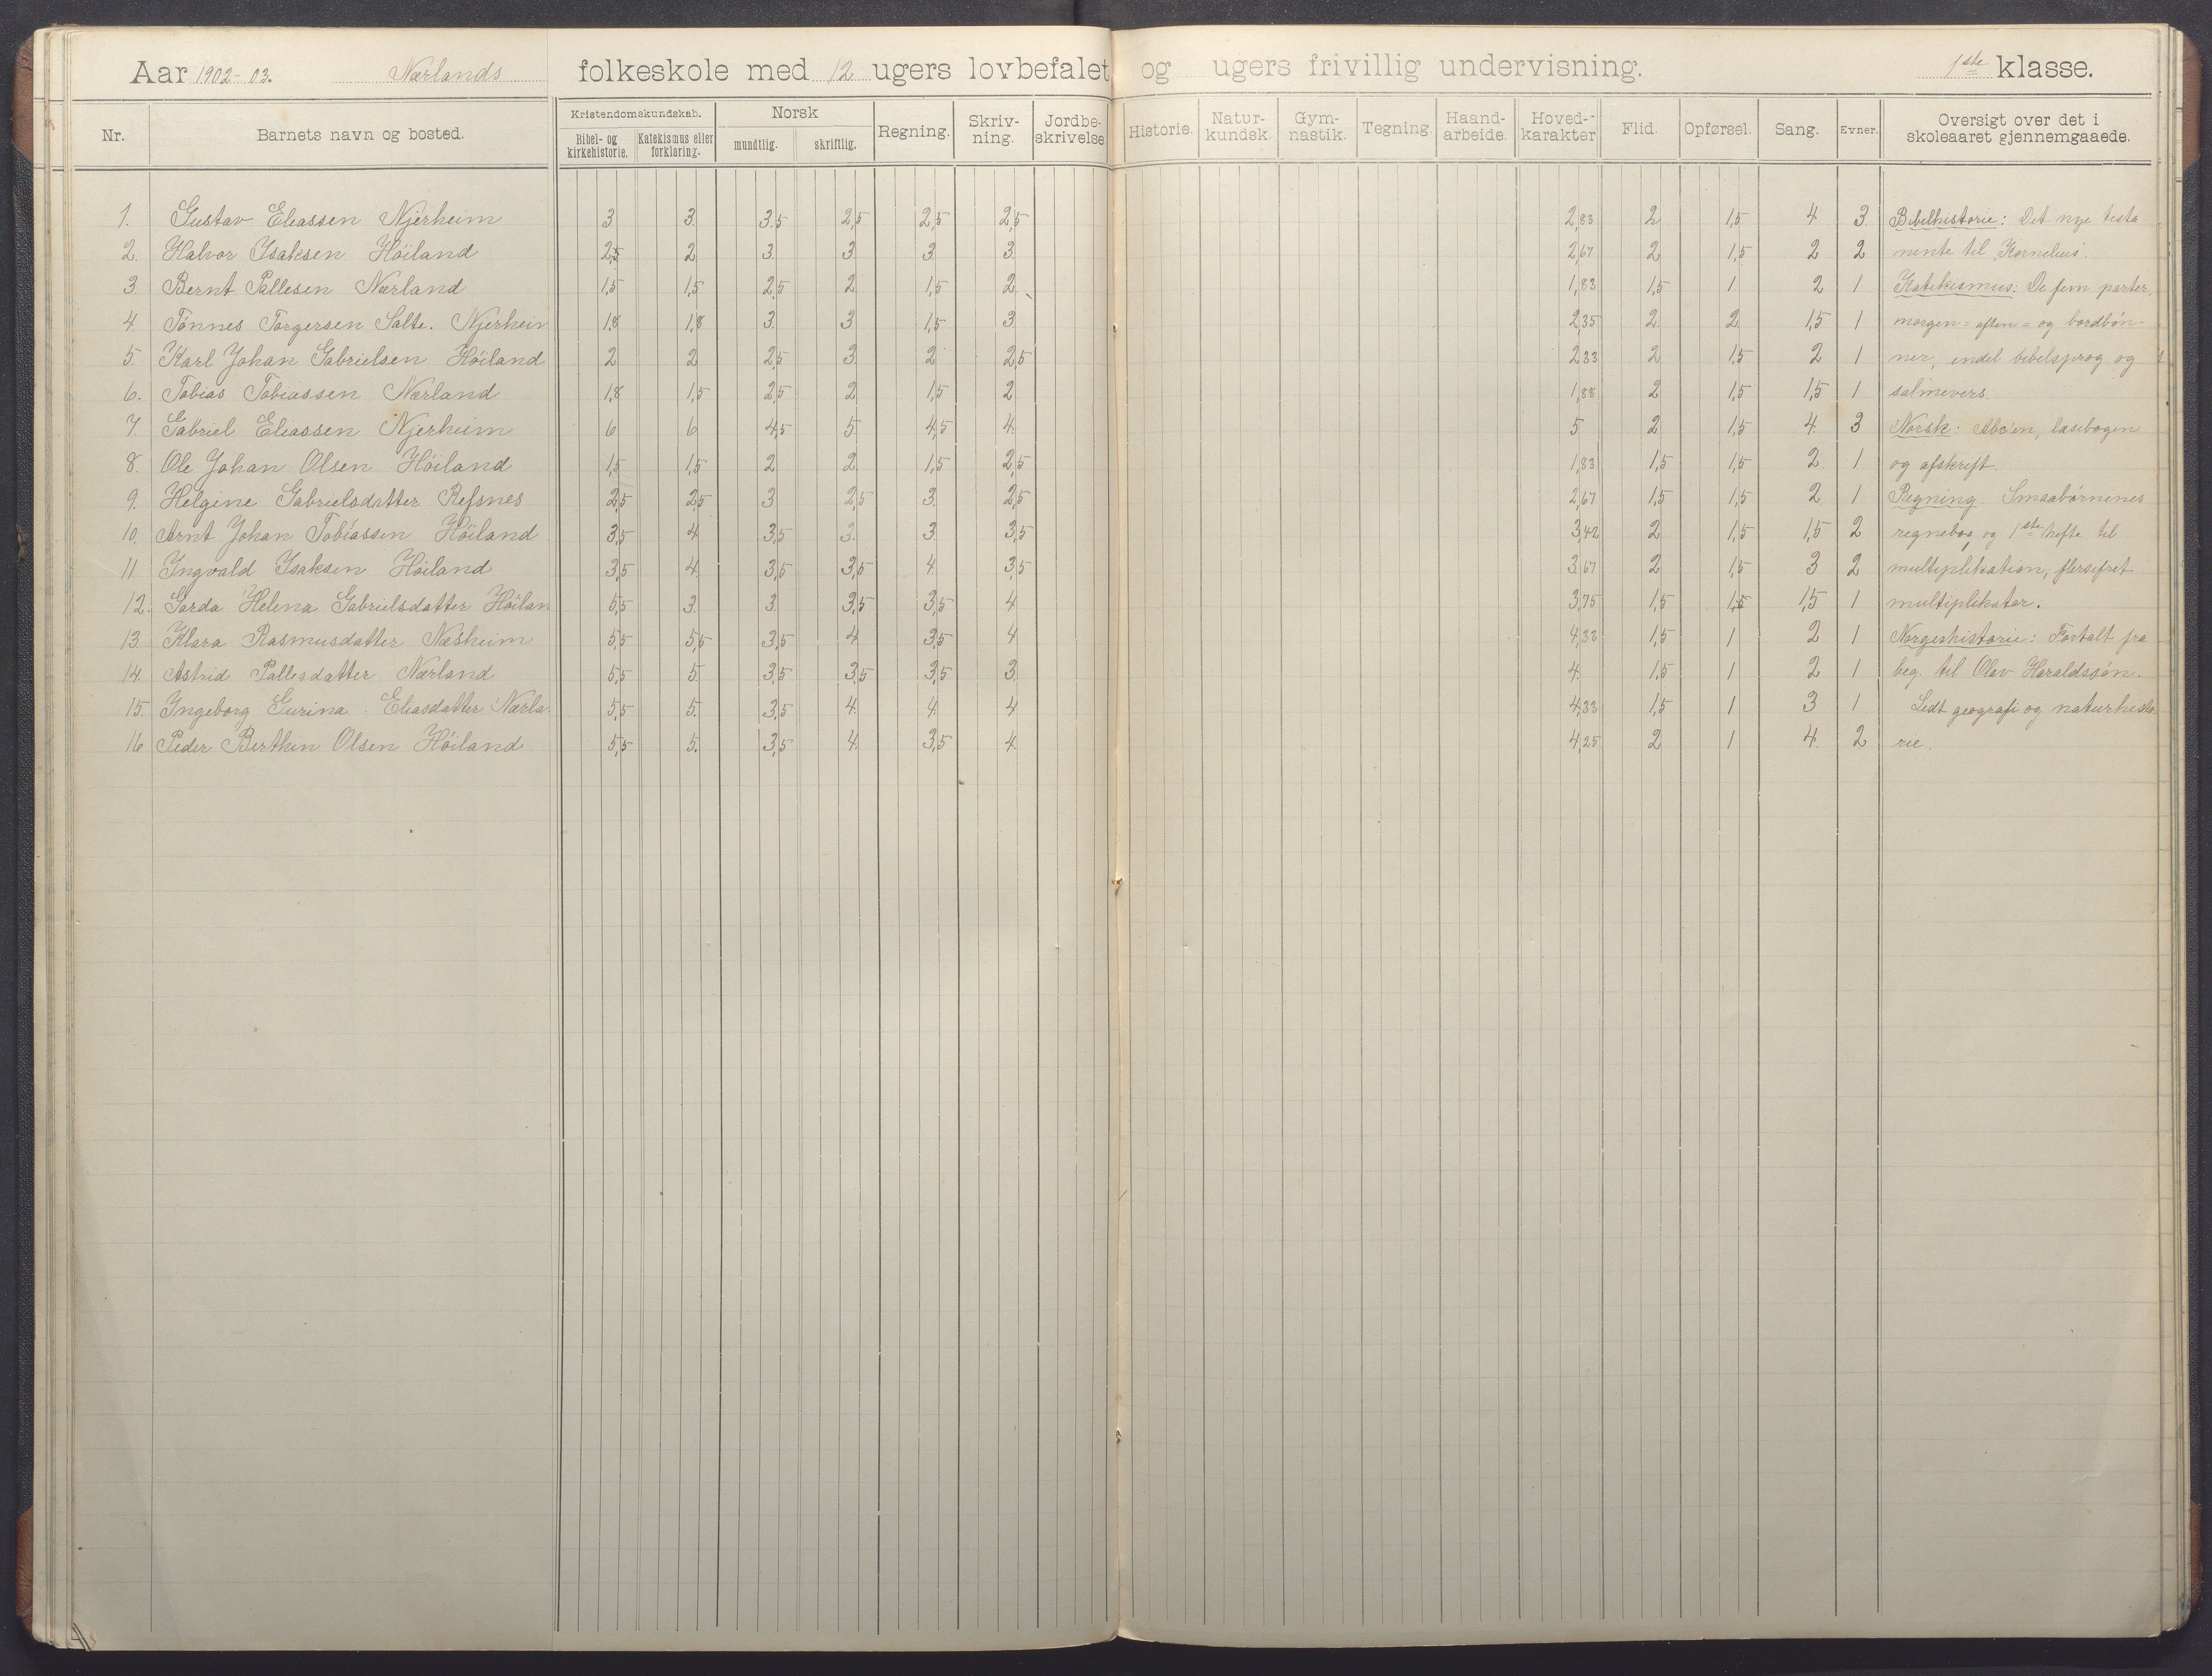 Aar 1902-03. Nærlands folkeskole med 12 ugers lovbefalet og ugers frivillig undervisning. 1ste klasse.
Nr. Barnets navn og bosted. Kristendomskundskab. Bibel- og kirkehistorie. Katekismus eller forklaring. Norsk mundtlig. skriftlig. Regning. Skriv-ning. Jordbe-skrivelse Historie. Natur-kundsk. Gym-nastik. Tegning Haand-arbeide. Hoved-karakter Flid. Opførsel. Sang. Evner. Oversigt over det i skoleaaret gjennemgaaede.
1. Gustav Eliassen Njerheim 3 3 3,5 2,5 2,5 2,5 2,83 2 1,5 4 3 Bibelhistorie: Det nye testa-
2. Halvor Isaksen Höiland 2,5 2 3 3 3 3 2,67 2 1,5 2 2 mente til Kornelius.
3 Bernt Pallesen Nærland 1,5 1,5 2,5 2 1,5 2 1,83 1,5 1 2 1 Katekismus: De fem parter,
4. Tönnes Torgersen Salte. Njerheim 1,8 1,8 3 3 1,5 3 2,35 2 2 1,5 1 morgen = aften = og bordbön-
5. Karl Johan Gabrielsen Höiland 2 2 2,5 3 2 2,5 2,33 2 1,5 2 1 ner, endel bibelsprog og
6. Tobias Tobiassen Nærland 1,8 1,5 2,5 2 1,5 2 1,88 2 1,5 1,5 1 salmevers.
7. Gabriel Eliassen Njerheim 6 6 4,5 5 4,5 4 5 2 1,5 4 3 Norsk: Abc'en, læsebogen
8. Ole Johan Olsen Höiland 1,5 1,5 2 2 1,5 2,5 1,83 1,5 1,5 2 1 og afskrift.
9. Helgine Gabrielsdatter Refsnes 2,5 2,5 3 2,5 3 2,5 2,67 1,5 1,5 2 1 Regning. Smaabörnenes
10. Arnt Johan Tobiassen Höiland 3,5 4 3,5 3 3 3,5 3,42 2 1,5 1,5 2 regnebog og 1ste hefte til
11. Ingvald Isaksen Höiland 3,5 4 3,5 3,5 4 3,5 3,67 2 1,5 3 2 multiplikation, flersifret
12. Garda Helena Gabrielsdatter Höilan 5,5 3 3 3,5 3,5 4 3,75 1,5 1,5 1,5 1 multiplikator.
13. Klara Rasmusdatter Næsheim 5,5 5,5 3,5 4 3,5 4 4,33 1,5 1 2 1 Norgeshistorie: Fortalt fra
14. Astrid Pallesdatter Nærland 5,5 5 3,5 3,5 3,5 3 4 1,5 1 2 1 beg. til Olav Haraldssön.
15. Ingeborg Gurina Eliasdatter Nærla 5,5 5 3,5 4 4 4 4,33 1,5 1 3 1 Lidt geografi og naturhisto
16 Peder Berthin Olsen Höiland 5,5 5 3,5 4 3,5 4 4,25 2 1 4 2 rie.